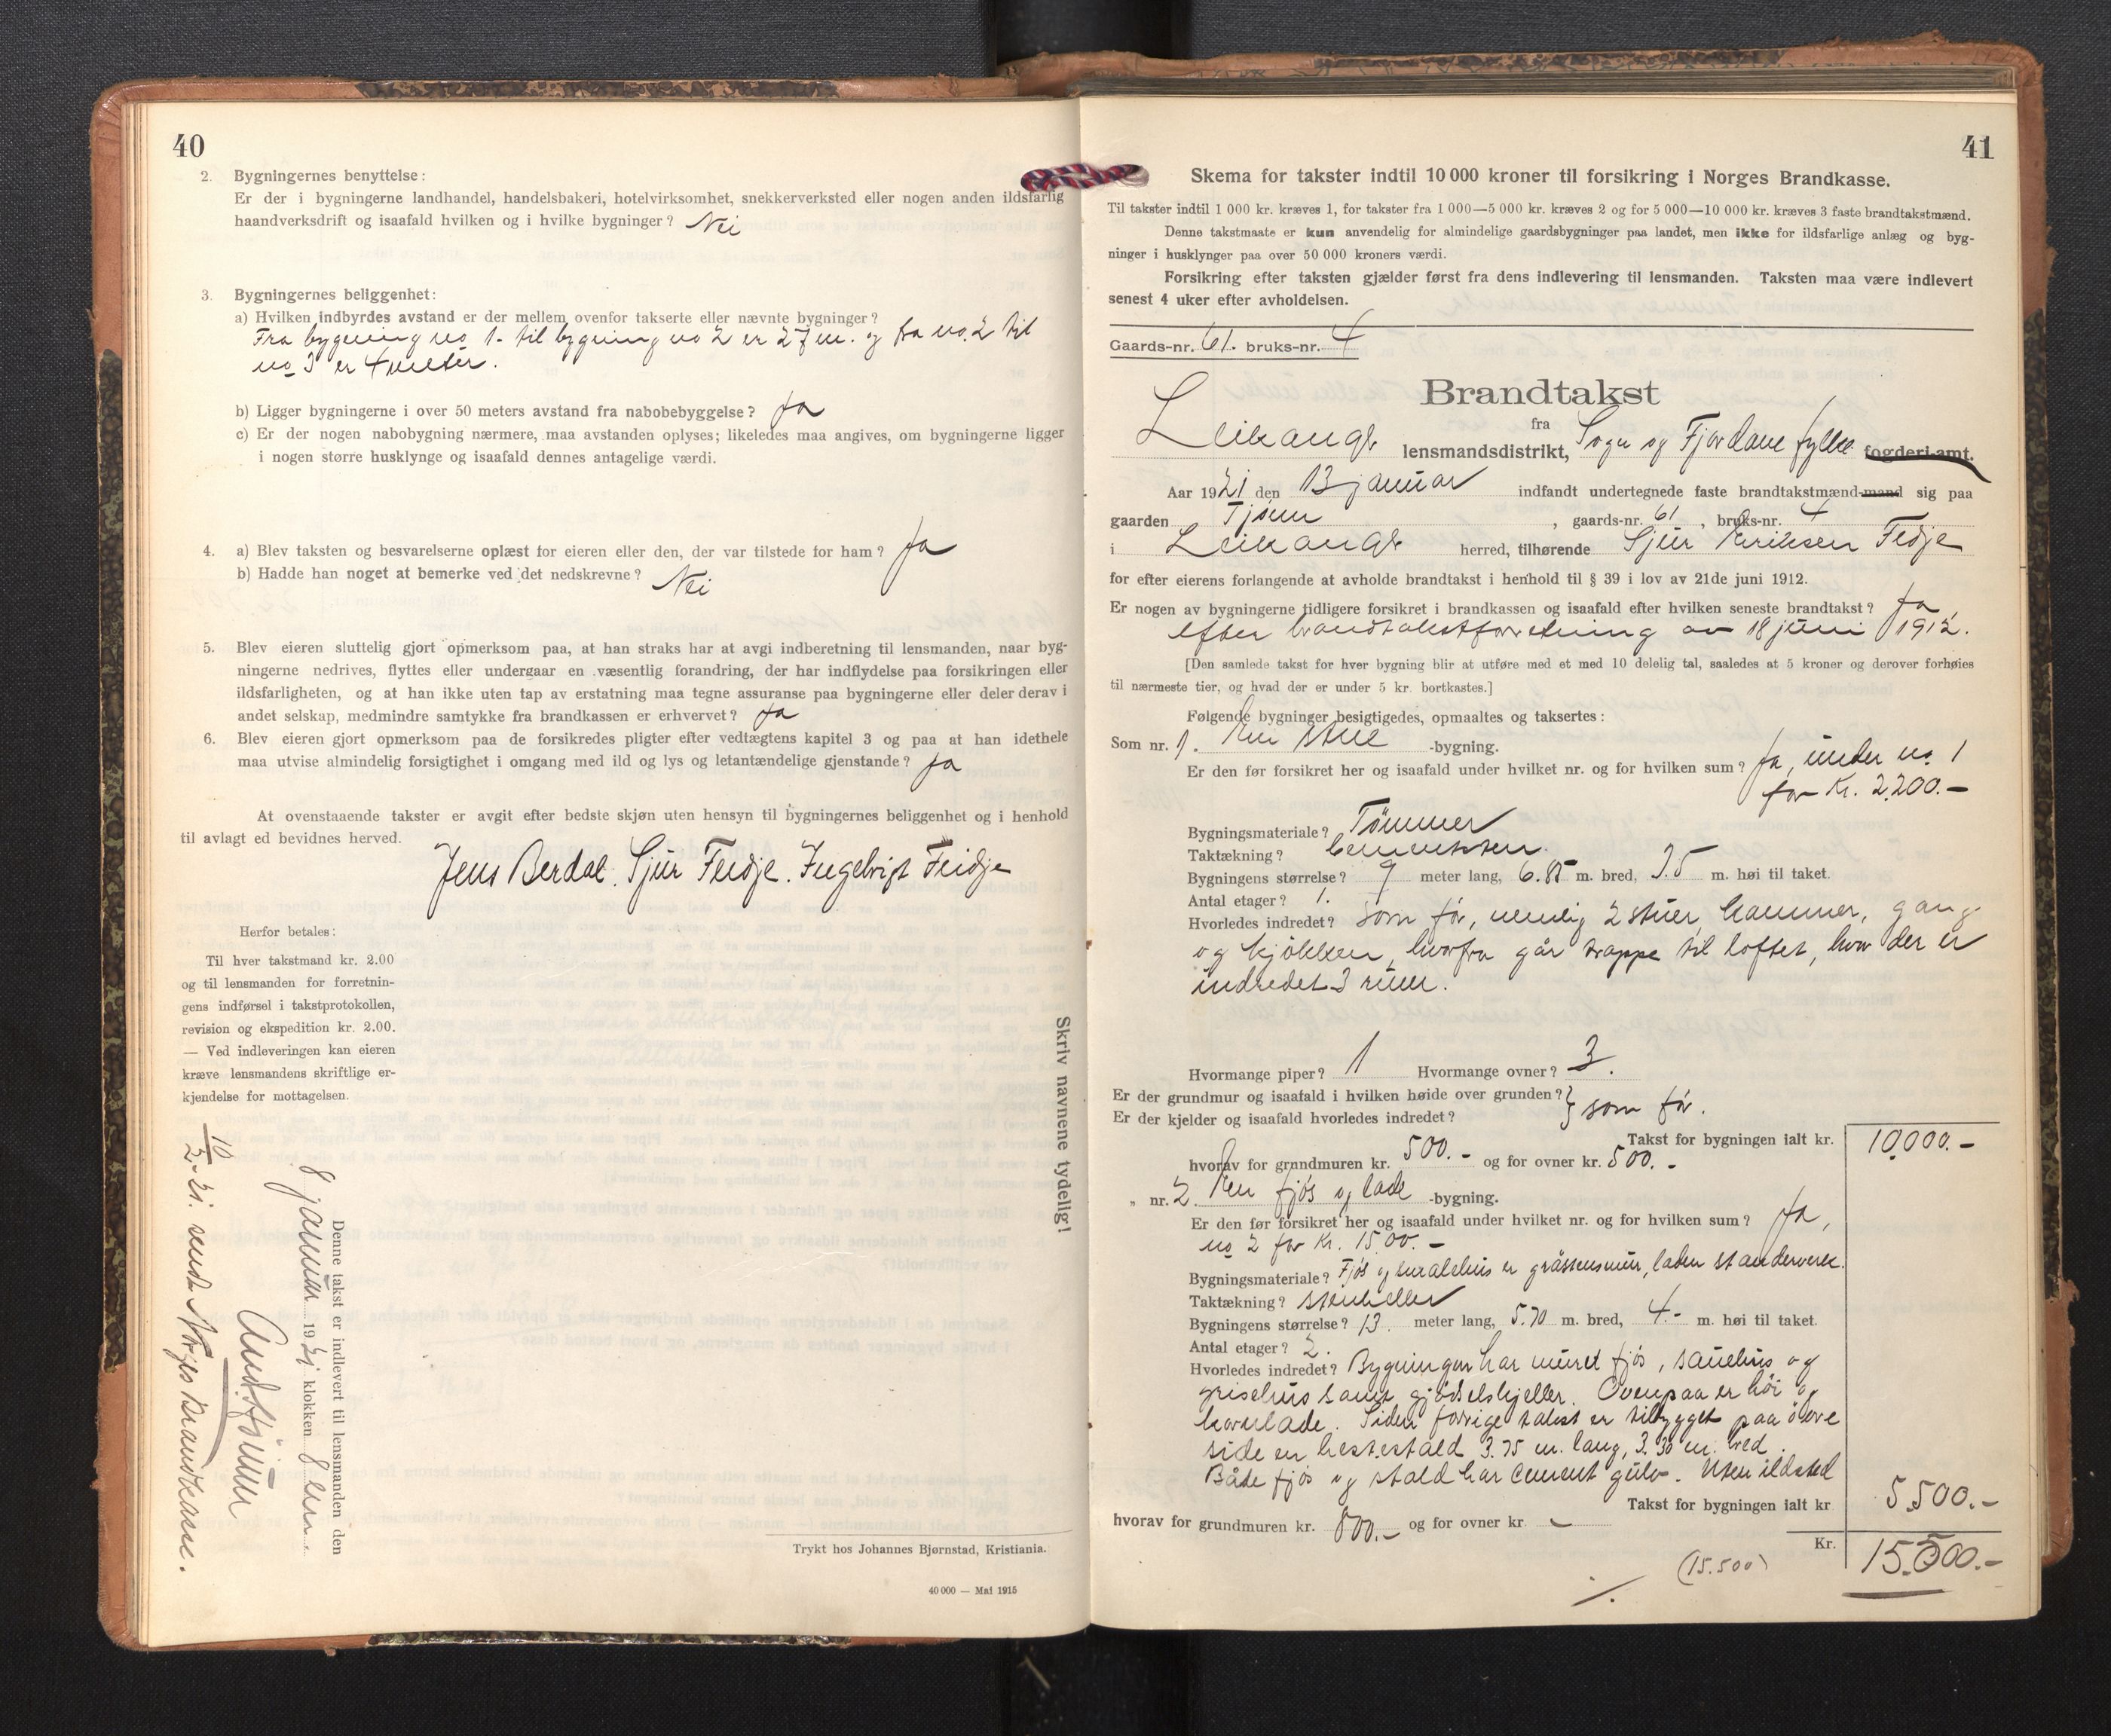 40
2. Bygningernes benyttelse:
Er der i bygningerne landhandel, handelsbakeri, hotelvirksomhet, snekkerverksted eller nogen anden ildsfarlig
haandverksdrift og isaafald hvilken og i hvilke bygninger? Nei
3. Bygningernes beliggenhet:
a) Hvilken indbyrdes avstand er der mellem ovenfor takserte eller nævnte bygninger?
Fra bygning no 1. til bygning no 2 er 27 m. og fra no. 2 til
no 3 er 4 meter.
b) Ligger bygningerne i over 50 meters avstand fra nabobebyggelse? Ja
c) Er der nogen nabobygning nærmere, maa avstanden oplyses; likeledes maa angives, om bygningerne ligger
i nogen større husklynge og isaafald dennes antagelige værdi.
4. a) Blev taksten og besvarelserne oplæst for eieren eller den, der var tilstede for ham? Ja
b) Hadde han noget at bemerke ved det nedskrevne? Nei
5. Blev eieren sluttelig gjort opmerksom paa, at han straks har at avgi indberetning til lensmanden, naar byg-
ningerne nedrives, flyttes eller undergaar en væsentlig forandring, der har indflydelse paa forsikringen eller
ildsfarligheten, og at han ikke uten tap av erstatning maa tegne assuranse paa bygningerne eller deler derav i
andet selskap, medmindre samtykke fra brandkassen er erhvervet? Ja
6. Blev eieren gjort opmerksom paa de forsikredes pligter efter vedtægtens kapitel 3 og paa at han idethele
maa utvise almindelig forsigtighet i omgang med ild og lys og letantændelige gjenstande? Ja
At ovenstaaende takster er avgit efter bedste skjøn uten hensyn til bygningernes beliggenhet og i henhold
til avlagt ed bevidnes herved.
Jens Berdal. Sjur Feidje. Ingebrigt Feidje
Herfor betales:
Til hver takstmand kr. 2.00
og til lensmanden for forretnin-
gens indførsel i takstprotokollen,
revision og ekspedition kr. 2.00.
— Ved indleveringen kan eieren
kræve lensmandens skriftlige er-
kjendelse for mottagelsen.
Skriv navnene tydelig!
Denne takst er indlevert til lensmanden den
8 januar 1921 klokken 8 em.
10/2-21. sendt Norges Brandkasse.
Trykt hos Johannes Bjørnstad, Kristiania.
40 000 — Mai 1915
41
Skema for takster indtil 10 000 kroner til forsikring i Norges Brandkasse.
Til takster indtil 1 000 kr. kræves 1, for takster fra 1 000—5 000 kr. kræves 2 og for 5 000—10 000 kr. kræves 3 faste brandtakstmænd.
Denne takstmaate er kun anvendelig for almindelige gaardsbygninger paa landet, men ikke for ildsfarlige anlæg og byg-
ninger i husklynger paa over 50 000 kroners værdi.
Forsikring efter taksten gjælder først fra dens indlevering til lensmanden. Taksten maa være indlevert
senest 4 uker efter avholdelsen.
Gaards-nr. 61. bruks-nr. 4
Brandtakst
fra
Leikanger lensmandsdistrikt, Sogn og Fjordane fylke fogderi amt.
Aar 1921 den 13 januar indfandt undertegnede faste brandtakstmænd-mand sig paa
gaarden Tjsum, gaards-nr. 61, bruks-nr. 4
i Leikanger herred, tilhørende Sjur Eriksen Feidje
for efter eierens forlangende at avholde brandtakst i henhold til § 39 i lov av 21de juni 1912.
Er nogen av bygningerne tidligere forsikret i brandkassen og isaafald efter hvilken seneste brandtakst? Ja
efter brandtakstforretning av 18 juni 1912.
[Den samlede takst for hver bygning blir at utføre med et med 10 delelig tal, saaledes at 5 kroner og derover forhøies
til nærmeste tier, og hvad der er under 5 kr. bortkastes.]
Følgende bygninger besigtigedes, opmaaltes og taksertes:
Som nr. 1. En stue -bygning.
Er den før forsikret her og isaafald under hvilket nr. og for hvilken sum? Ja, under no 1
for Kr. 2.200.-
Bygningsmateriale? Tömmer
Taktækning? Cementsten.
Bygningens størrelse? 9 meter lang, 6.85 m. bred, 3.5 m. høi til taket.
Antal etager? 1.
Hvorledes indredet? Som før, nemlig 2 stuer, kammer, gang
og kjökken, hvorfra går trappe til loftet, hvor der er
indredet 3 rum.
Hvormange piper? 1 Hvormange ovner? 3.
Er der grundmur og isaafald i hvilken høide over grunden?
Er der kjelder og isaafald hvorledes indredet? } som før.
Takst for bygningen ialt kr. 10.000.-
hvorav for grundmuren kr. 500.- og for ovner kr. 500.-
„ nr. 2. En fjös og lade -bygning.
Er den før forsikret her og isaafald under hvilket nr. og for hvilken sum? Ja,
no 2 for Kr. 1500.-
Bygningsmateriale? Fjös og smalehus er gråstensmur, laden standerverk.
Taktækning? Stenheller
Bygningens størrelse? 13. meter lang, 5.70 m. bred, 4.- m. høi til taket.
Antal etager? 2.
Hvorledes indredet? Bygningen har muret fjös, sauehus og
grisehus samt gjödselskjeller. Ovenpaa er höi og
kornlade. Siden forrige takst er tilbygget paa övre
side en hestestald 3.75 m. lang, 3.30 m. bred.
Både fjös og stald har cement gulv. Uten ildsted
Takst for bygningen ialt kr 5.500.-
hvorav for grundmuren kr. 800.- og for ovner kr -
Kr. 15.500.-
(15.500)